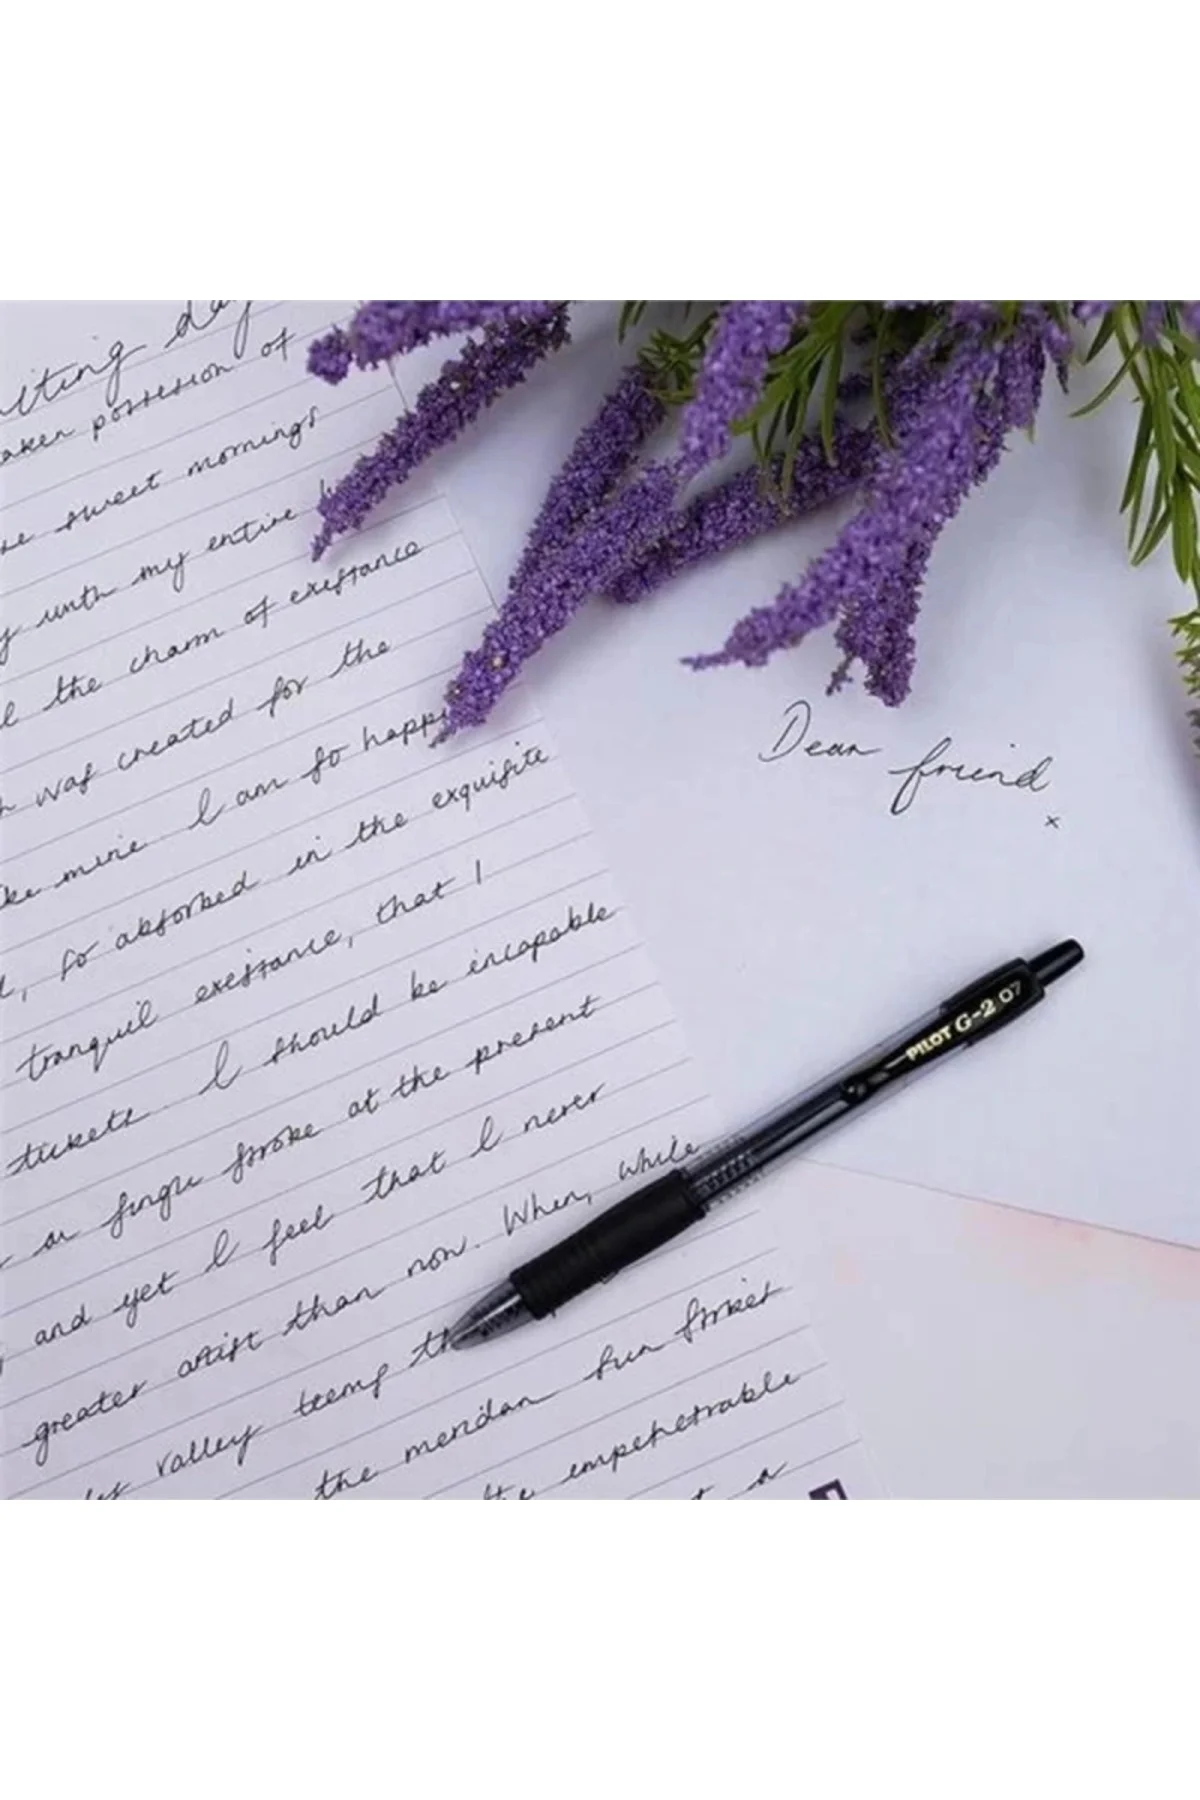 day
possession of
sweet mornings
with my entire
the charm of existance
was created for the
mine I am so happ
so absorbed in the exquisite
tranquil existance, that I
I should be incapable
stroke at the present
and yet I feel that I never
greater artist than now. When, while
valley teems th
the meridan sun
the empenetrable
a
Dear friend
x
PILOT G-2 07